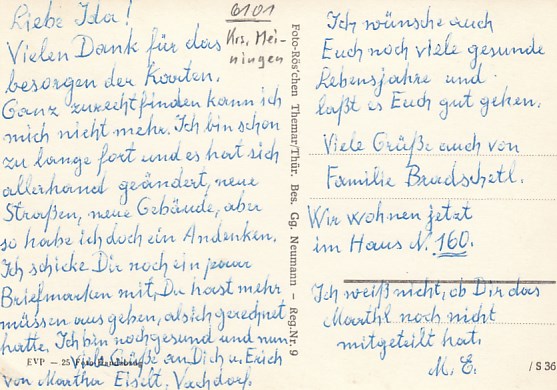 Liebe Ida!
Vielen Dank für das
besorgen der Karten.
Ganz zurechtfinden kann ich
mich nicht mehr. Ich bin schon
zu lange fort und es hat sich
allerhand geändert, neue
Straßen, neue Gebäude, aber
so habe ich doch ein Andenken.
Ich schicke Dir noch ein paar
Briefmarken mit, Du hast mehr
müssen ausgeben, als ich gerechnet
hatte. Ich bin noch gesund und nun
Viele Grüße an Dich u. Erich
von Martha Eiselt, Vachdorf.
EVP — 25
6101
Krs. Mei-
ningen
Foto-Rös'chen Themar/Thür. Bes. Gg. Neumann — Reg.Nr. 9
Ich wünsche auch
Euch noch viele gesunde
Lebensjahre und
laßt es Euch gut gehen.
Viele Grüße auch von
Familie Bradschetl.
Wir wohnen jetzt
im Haus N. 160.
Ich weiß nicht, ob Dir das
Marthl noch nicht
mitgeteilt hat.
M. E.
/ S 36